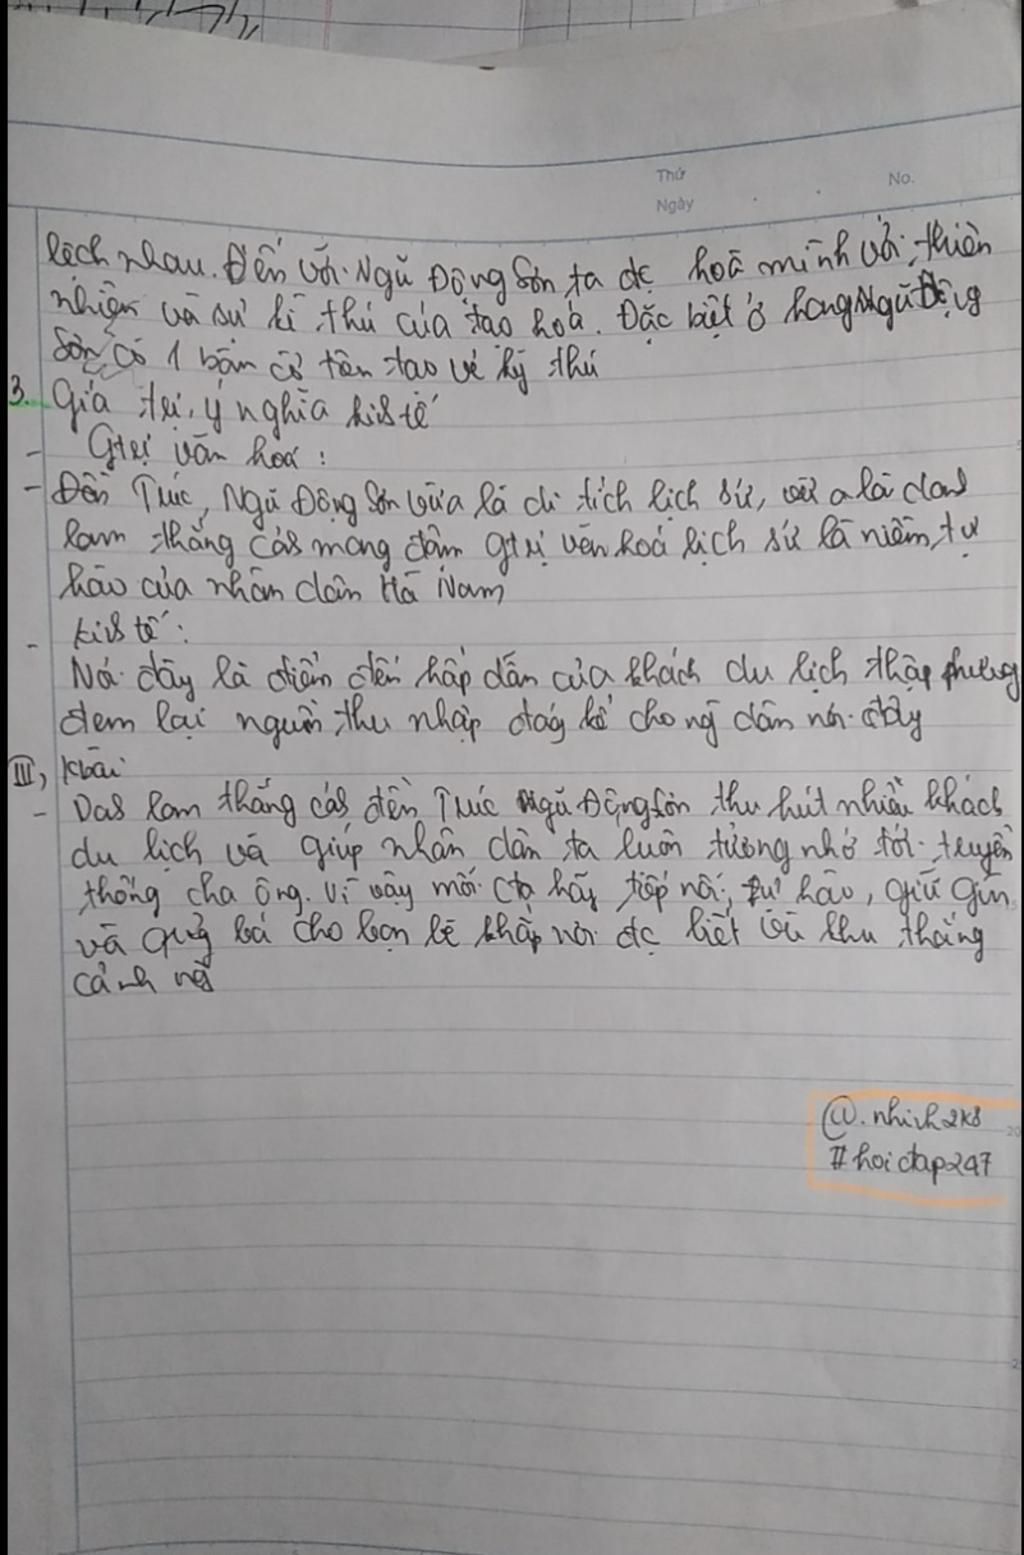 Thứ
No.
Ngày
lệch nhau. Đến với Ngũ Động Sơn, ta đc hoà mình với thiên
nhiên và sự kì thú của tạo hoá. Đặc biệt ở hang Ngũ Động
Sơn có 1 bàn cờ tiên tạo vẻ kỳ thú
3. Giá trị, ý nghĩa kinh tế
- Gtrị văn hoá:
- Đền Trúc, Ngũ Động Sơn vừa là di tích lịch sử, vừa là danh
lam thắng cảnh mang đậm gtrị văn hoá lịch sử là niềm tự
hào của nhân dân Hà Nam
- Kinh tế:
Nơi đây là điểm đến hấp dẫn của khách du lịch thập phương
đem lại nguồn thu nhập đáng kể cho ng dân nơi đây
III, Kbài
- Danh lam thắng cảnh đền Trúc Ngũ Động Sơn thu hút nhiều khách
du lịch và giúp nhân dân ta luôn tưởng nhớ tới truyền
thống cha ông. Vì vậy mỗi cta hãy tiếp nối, tự hào, giữ gìn
và quảng bá cho bạn bè khắp nơi đc biết về khu thắng
cảnh này
@.nhinh2k8
#hoidap247